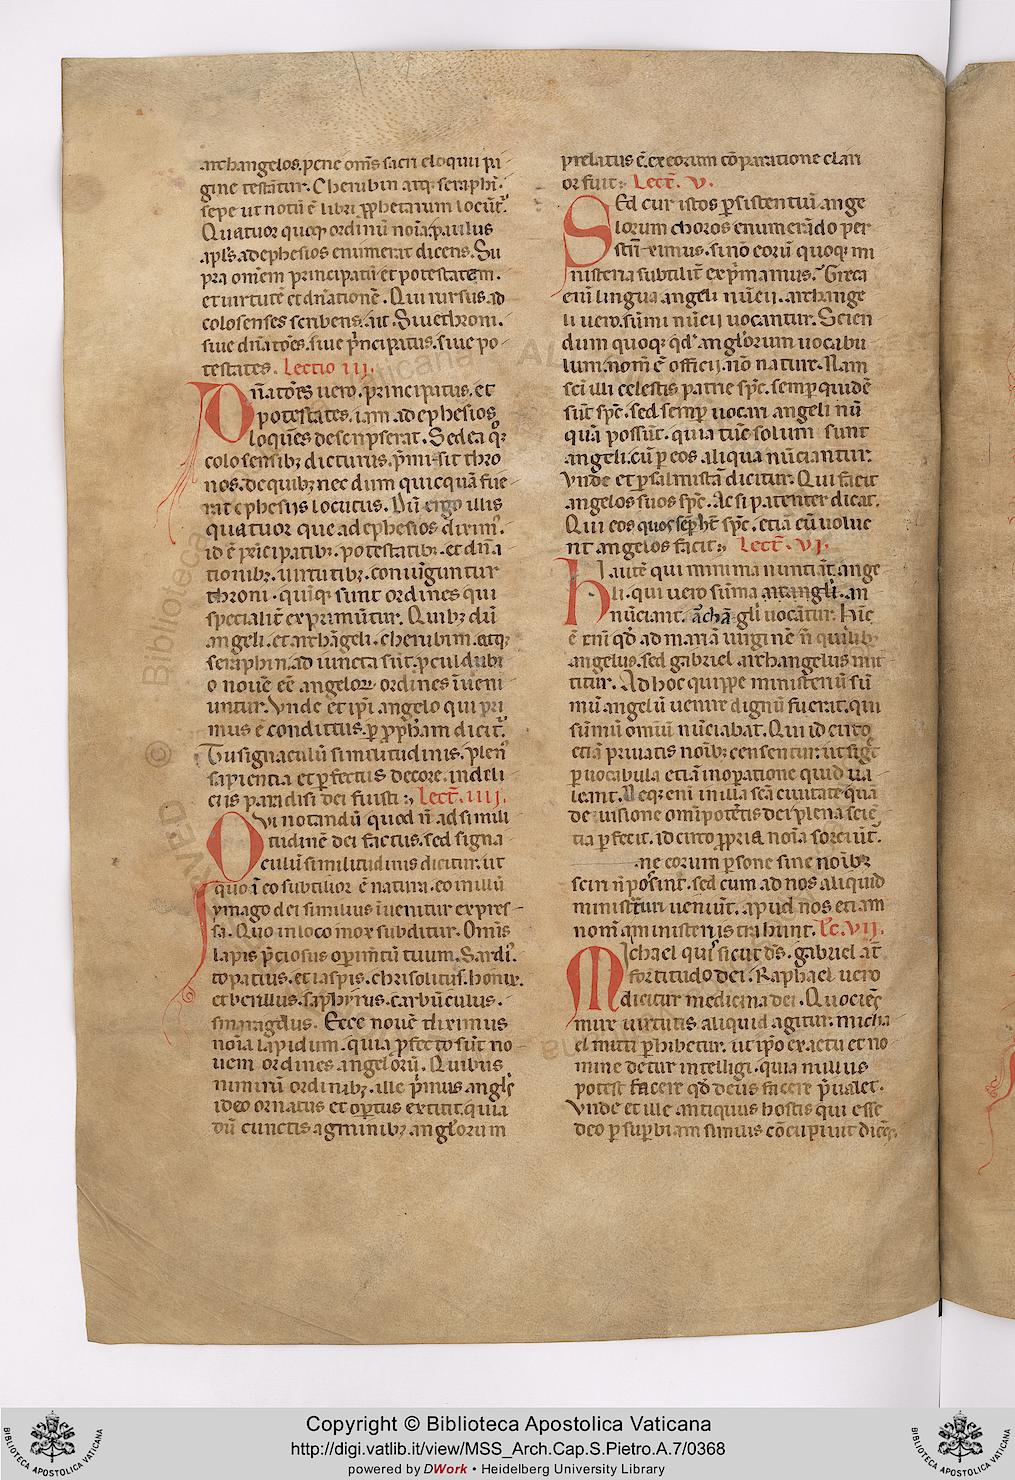 archangelos. pene om̄s sacri eloquii pa
gine testãtur. Cherubin atq; seraphĩ.
sepe ut notũ ē libri ꝓphetarum locũt̃.
Quatuor quoq; ordinũ noĩa paulus
apl̃s ad ephesios enumerat dicens. Su
pra omẽm principatũ et potestatem.
et uirtutẽ et dñationẽ. Qui rursus ad
colosenses scribens. ait. Siue throni.
siue dñatões. siue p̃ncipatus. siue po
testates. Lectio III.
Dñatões uero. principatus. et
potestates. iam ad ephesios
loquẽs descripserat. Sed ea q̃
colosensibꝫ dicturus. p̃misit thro
nos. de quibꝫ nec dum quicquã fue
rat ephesijs locutus. Dũ ergo illis
quatuor que ad ephesios diximꝰ.
id ē p̃ncipatibꝫ. potestatibꝫ. et dñа
tionibꝫ. uirtutibꝫ. coniũguntur
throni. quinqꝫ sunt ordines qui
specialit̃ exprimũtur. Quibꝫ dũ
angeli. et archãgeli. cherubim. atqꝫ
seraphin. ad iuncta sũt. ꝓculdubi
o nouẽ eẽ angeloꝝ ordines ĩueni
untur. Vnde et ip̃i angelo qui pri
mus ē conditus. ꝑ ꝓph̃am dicit̃.
Tu signaculũ similitudinis. plenꝰ
sapientia et ꝑfectus decore. in deli
ciis paradisi dei fuisti. Lect̃. IIII.
Qvi notandũ quod ñ ad simili
tudinẽ dei factus. sed signa
culũ similitudinis dicitur. ut
quo ĩ eo subtilior ē natura. eo in illũ
ymago dei similius ĩuenitur expres
sa. Quo in loco mox subditur. Om̃s
lapis p̃ciosus oꝑim̃tũ tuum. Sardiꝰ.
topatius. et iaspis. chrisolitus. honix.
et berillus. saphyrus. carbũculus.
smaragdus. Ecce nouẽ diximus
noĩa lapidum. quia ꝑfecto sũt no
uem ordines angelorũ. Quibus
nimirũ ordinibꝫ. ille p̃mus angl̃s
ideo ornatus et oꝑtus extitit. quia
dũ cunctis agminibꝫ anglorum
prelatus ē. ex eorum cõparatione clari
or fuit. Lect̃. V.
Sed cur istos ꝑsistentiũ ange
lorum choros enumerãdo per
strĩximus. si nõ eorũ quoqꝫ mi
nisteria subtilit̃ exp̃mamus. Greca
eni lingua angeli nũcij. archange
li uero. sũmi nũcij uocantur. Scien
dum quoqꝫ qđ anglorum uocabu
lum. nom̃ ē officij. nõ nature. Nam
sc̃i illi celestis patrie sp̃c. semꝑ quidẽ
sũt sp̃c. sed semꝑ uocari angeli nũ
quã possũt. quia tũc solum sunt
angeli. cũ ꝑ eos aliqua nũciantur.
Vnde et ꝑ psalmistã dicitur. Qui facit
angelos suos sp̃c. Ac si patenter dicat.
Qui eos quos semꝑ h̃t sp̃c. etiã cũ uolue
rit angelos facit. Lect̃. VI.
Hi autẽ qui minima nuntiãt. ange
li. qui uero sũma arcangli. an
nũciant. achãgli uocãtur. Hic̃
ē eni qđ ad mariã uirginẽ ñ quilibꝫ
angelus. sed gabriel archangelus mit
titur. Ad hoc quippe ministeriũ sũ
mũ angelũ uenire dignũ fuerat. qui
sũmũ omniũ nũciabat. Qui idcirco
etiã priuatis noĩbꝫ censentur. ut sig̃t
ꝑ uocabula etiã in oꝑatione quid ua
leant. Neqꝫ enĩ in illa sc̃a ciuitate quã
de uisione omĩpotẽtis dei plena sciẽ
tia ꝑfecit. idcirco ꝓpria noĩa sorciũt̃.
ne eorum ꝑsone sine noĩbꝫ
sciri ñ possint. sed cum ad nos aliquid
ministraturi ueniũt. apud nos etiam
nom̃ a ministeriis trahunt. Lc̃. VII.
Michael quis sicut d̃s. gabriel aũt
fortitudo dei. Raphael uero
dicitur medicina dei. Quociẽs
mire uirtutis aliquid agitur. micha
el mitti ꝑhibetur. ut ip̃o ex actu et no
mine detur intelligi. quia nullus
potest facere qđ deus facere p̃ualet.
Vnde et ille antiquus hostis qui esse
deo ꝑ suꝑbiam similis cõcupiuit dicẽs
Copyright © Biblioteca Apostolica Vaticana
http://digi.vatlib.it/view/MSS_Arch.Cap.S.Pietro.A.7/0368
powered by DWork • Heidelberg University Library
BIBLIOTECA APOSTOLICA VATICANA
BIBLIOTECA APOSTOLICA VATICANA